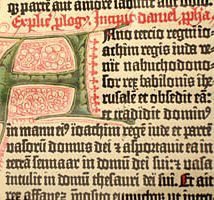 Explic̄ plog⁹. Incipit daniel, pħa.
Anno tercio regni io=
achim regis iuda ve=
nit nabuchodono=
sor rex babilonis ihe=
rusalē et obsedit eā:
et tradidit domin⁹
in manu ei⁹ ioachim regē iude et partē
vasorū domus dei: ⁊ asportavit ea in
terrā sennaar in domū dei sui: ⁊ vasa
intulit in domū thesauri dei sui. Et ait
rex